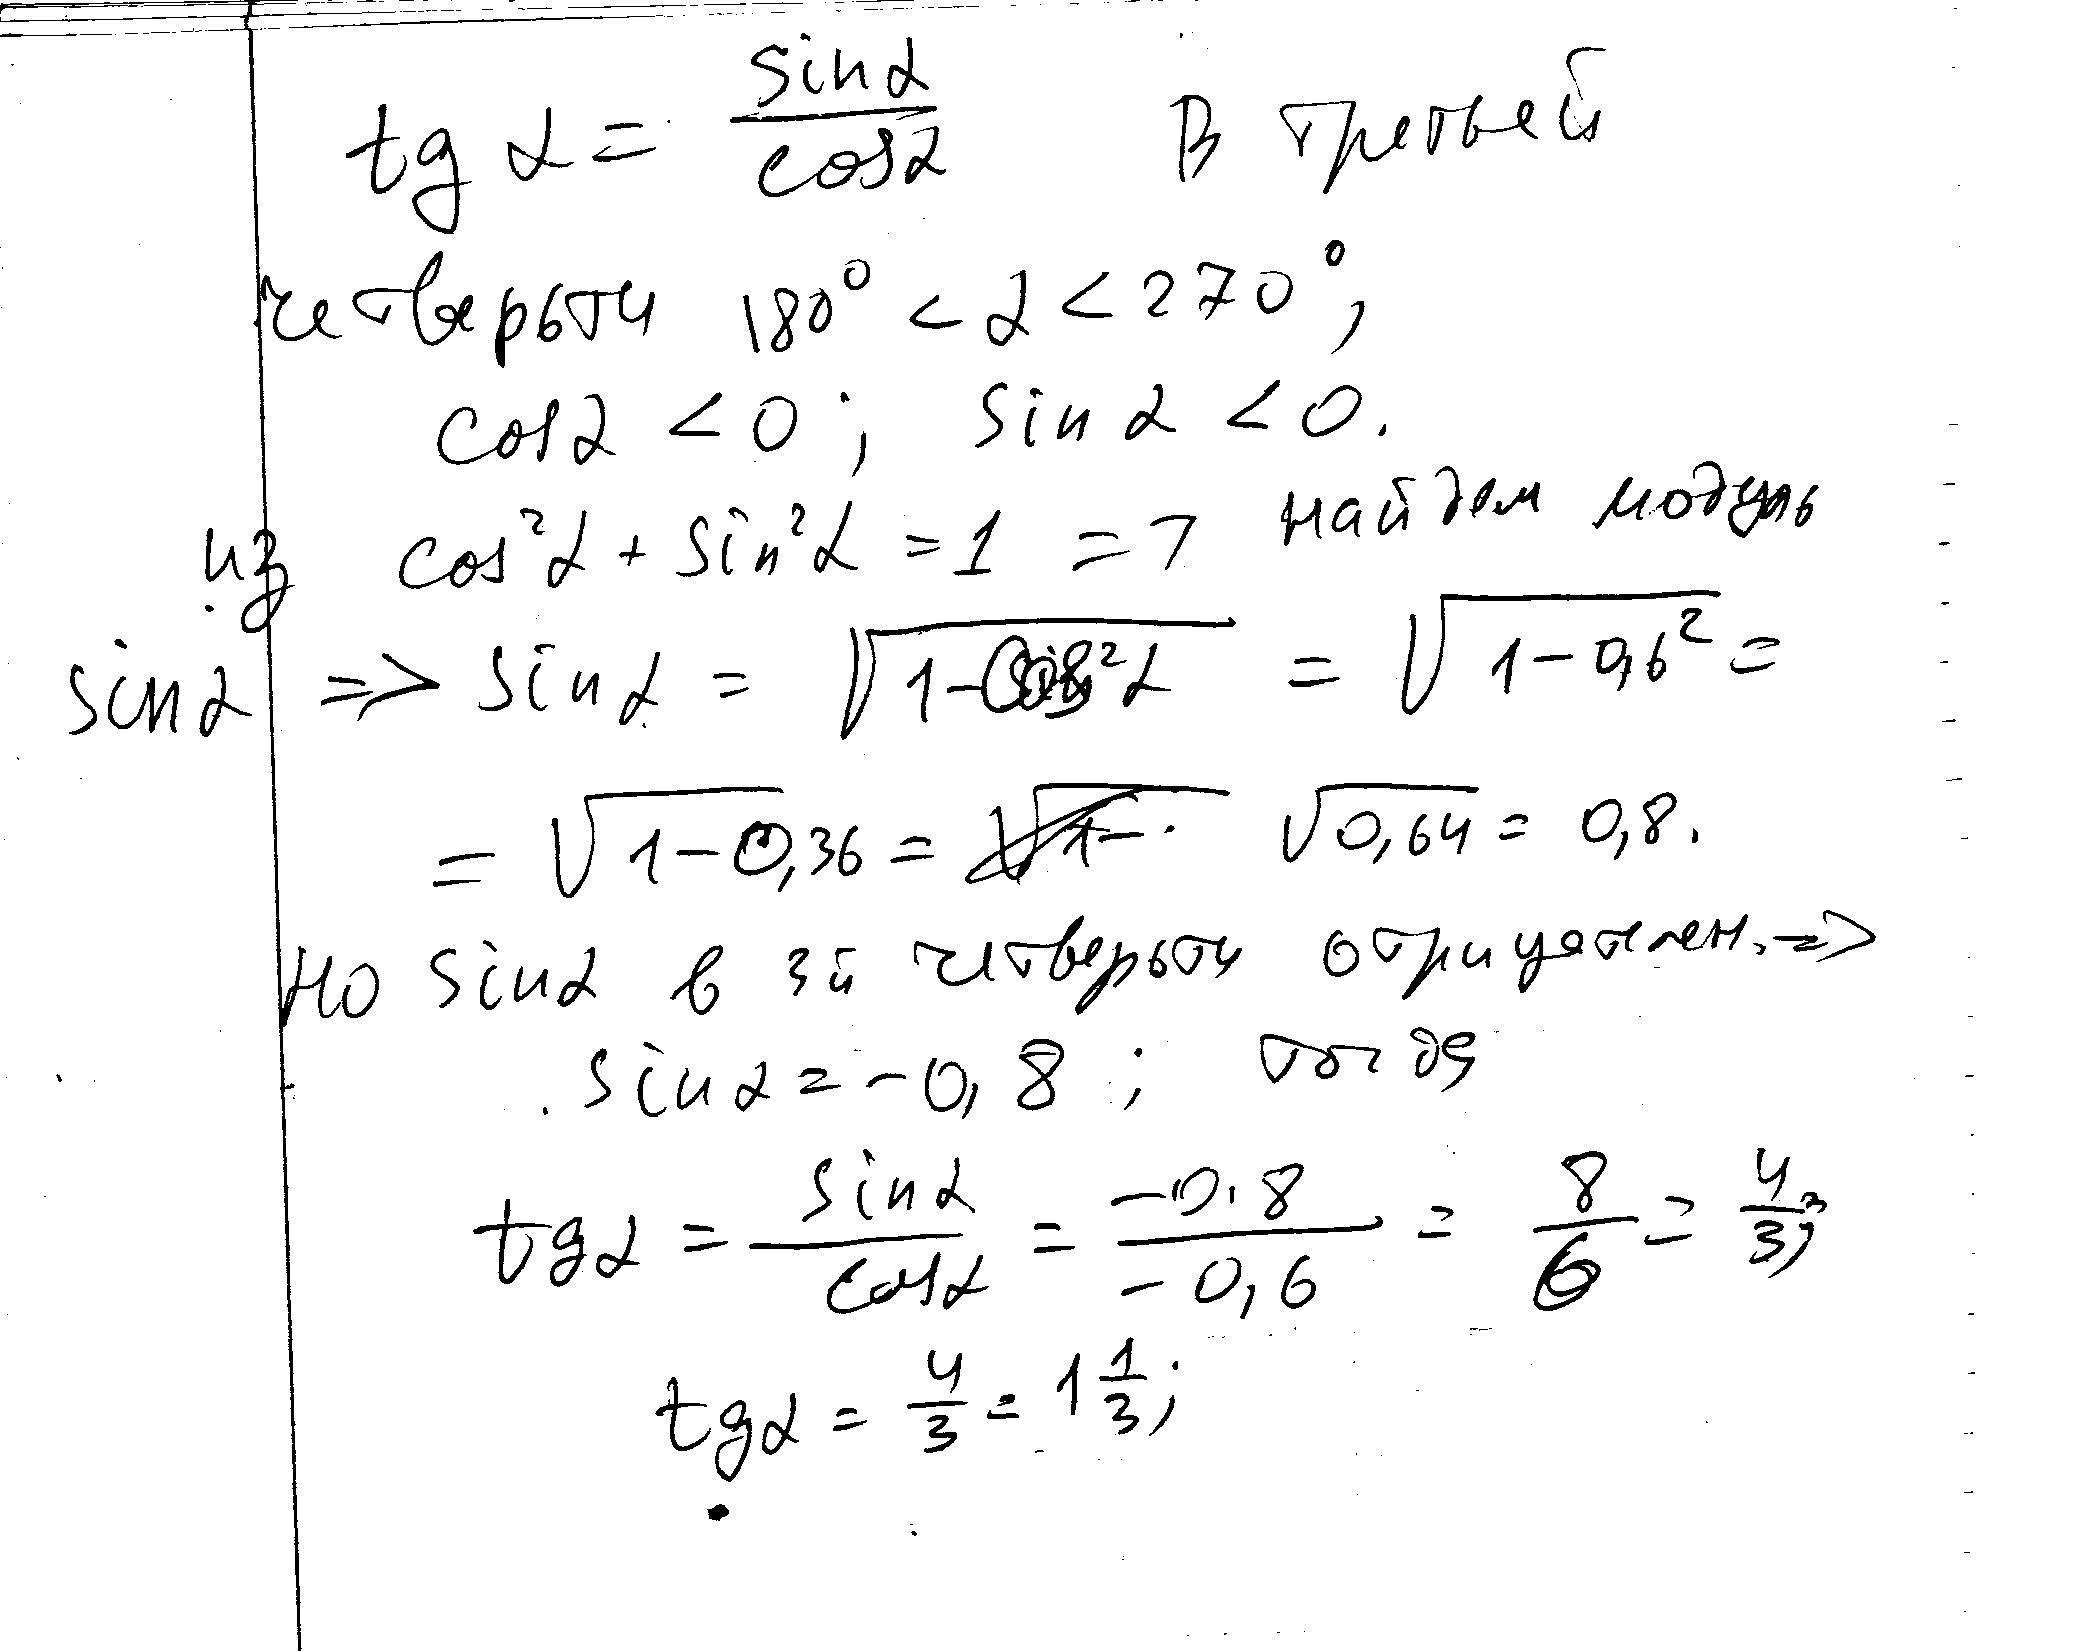 tg α = sinα / cosα В третьей
четверьти 180° < α < 270°;
cosα < 0; sin α < 0.
из cos²α + sin²α = 1 => найдем модуль
sinα => sinα = √(1-cos²α) = √(1-0,6²) =
= √(1-0,36) = √(0,64) = 0,8.
но sinα в 3й четверьти отрицателен. =>
sinα = -0,8; тогда
tgα = sinα / cosα = -0.8 / -0,6 = 8/6 = 4/3;
tgα = 4/3 = 1 1/3;